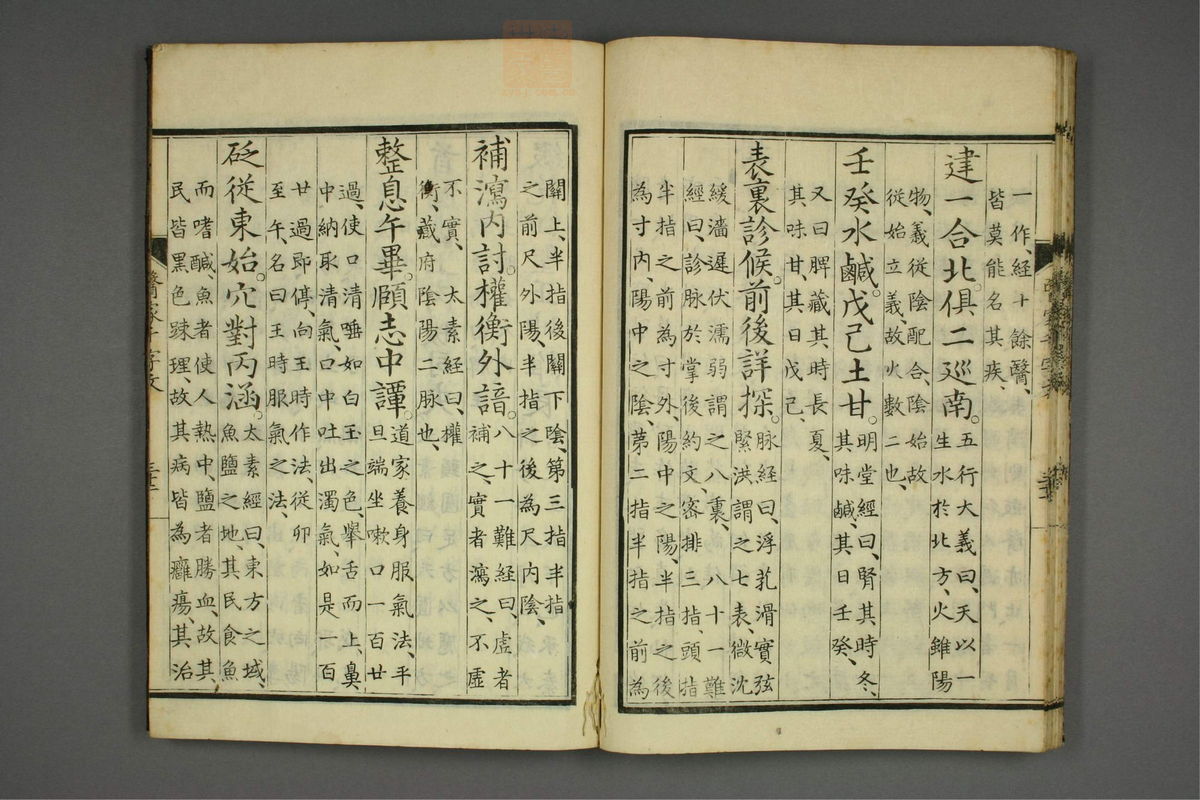 一作、経十餘醫、
皆莫能名其疾、
建一合北。俱二巡南。五行大義曰、天以一
生水於北方、火雖陽
物、義從陰配合、陰始故
從始立義、故火數二也、
壬癸水鹹。戊己土甘。明堂經曰、腎其時冬、
其味鹹、其日壬癸、
又曰脾藏其、時長夏、
其味甘、其日戊己、
表裏診候。前後詳探。脉經曰、浮芤滑實弦
緊洪謂之七表、微沈
緩濇遲伏濡弱謂之八裏、八十一難
經曰、診脉於掌後約文密排三指、頭指
半指之前為寸外、陽中之陽、半指之後
為寸内、陽中之陰、第二指半指之前為
關上、半指後關下陰、第三指半指
之前尺外陽、半指之後為尺内陰、
補瀉内討。權衡外諳。八十一難經曰、虛者
補之、實者瀉之、不虛
不實、太素經曰、權
衡、藏府陰陽二脉也、
整息午畢。願志中譚。道家養身服氣法、平
旦端坐嗽口一百廿
過、使口清唾如白玉之色、舉舌而上、鼻
中納取清氣、口中吐出濁氣、如是一百
廿過即停、向王時作法、從卯
至午、名曰王時服氣之法、
砭從東始。穴對丙涵。太素經曰、東方之域、
魚鹽之地、其民食魚
而嗜鹹、魚者使人熱中、鹽者勝血、故其
民皆黒色踈理、故其病皆為癰瘍、其治